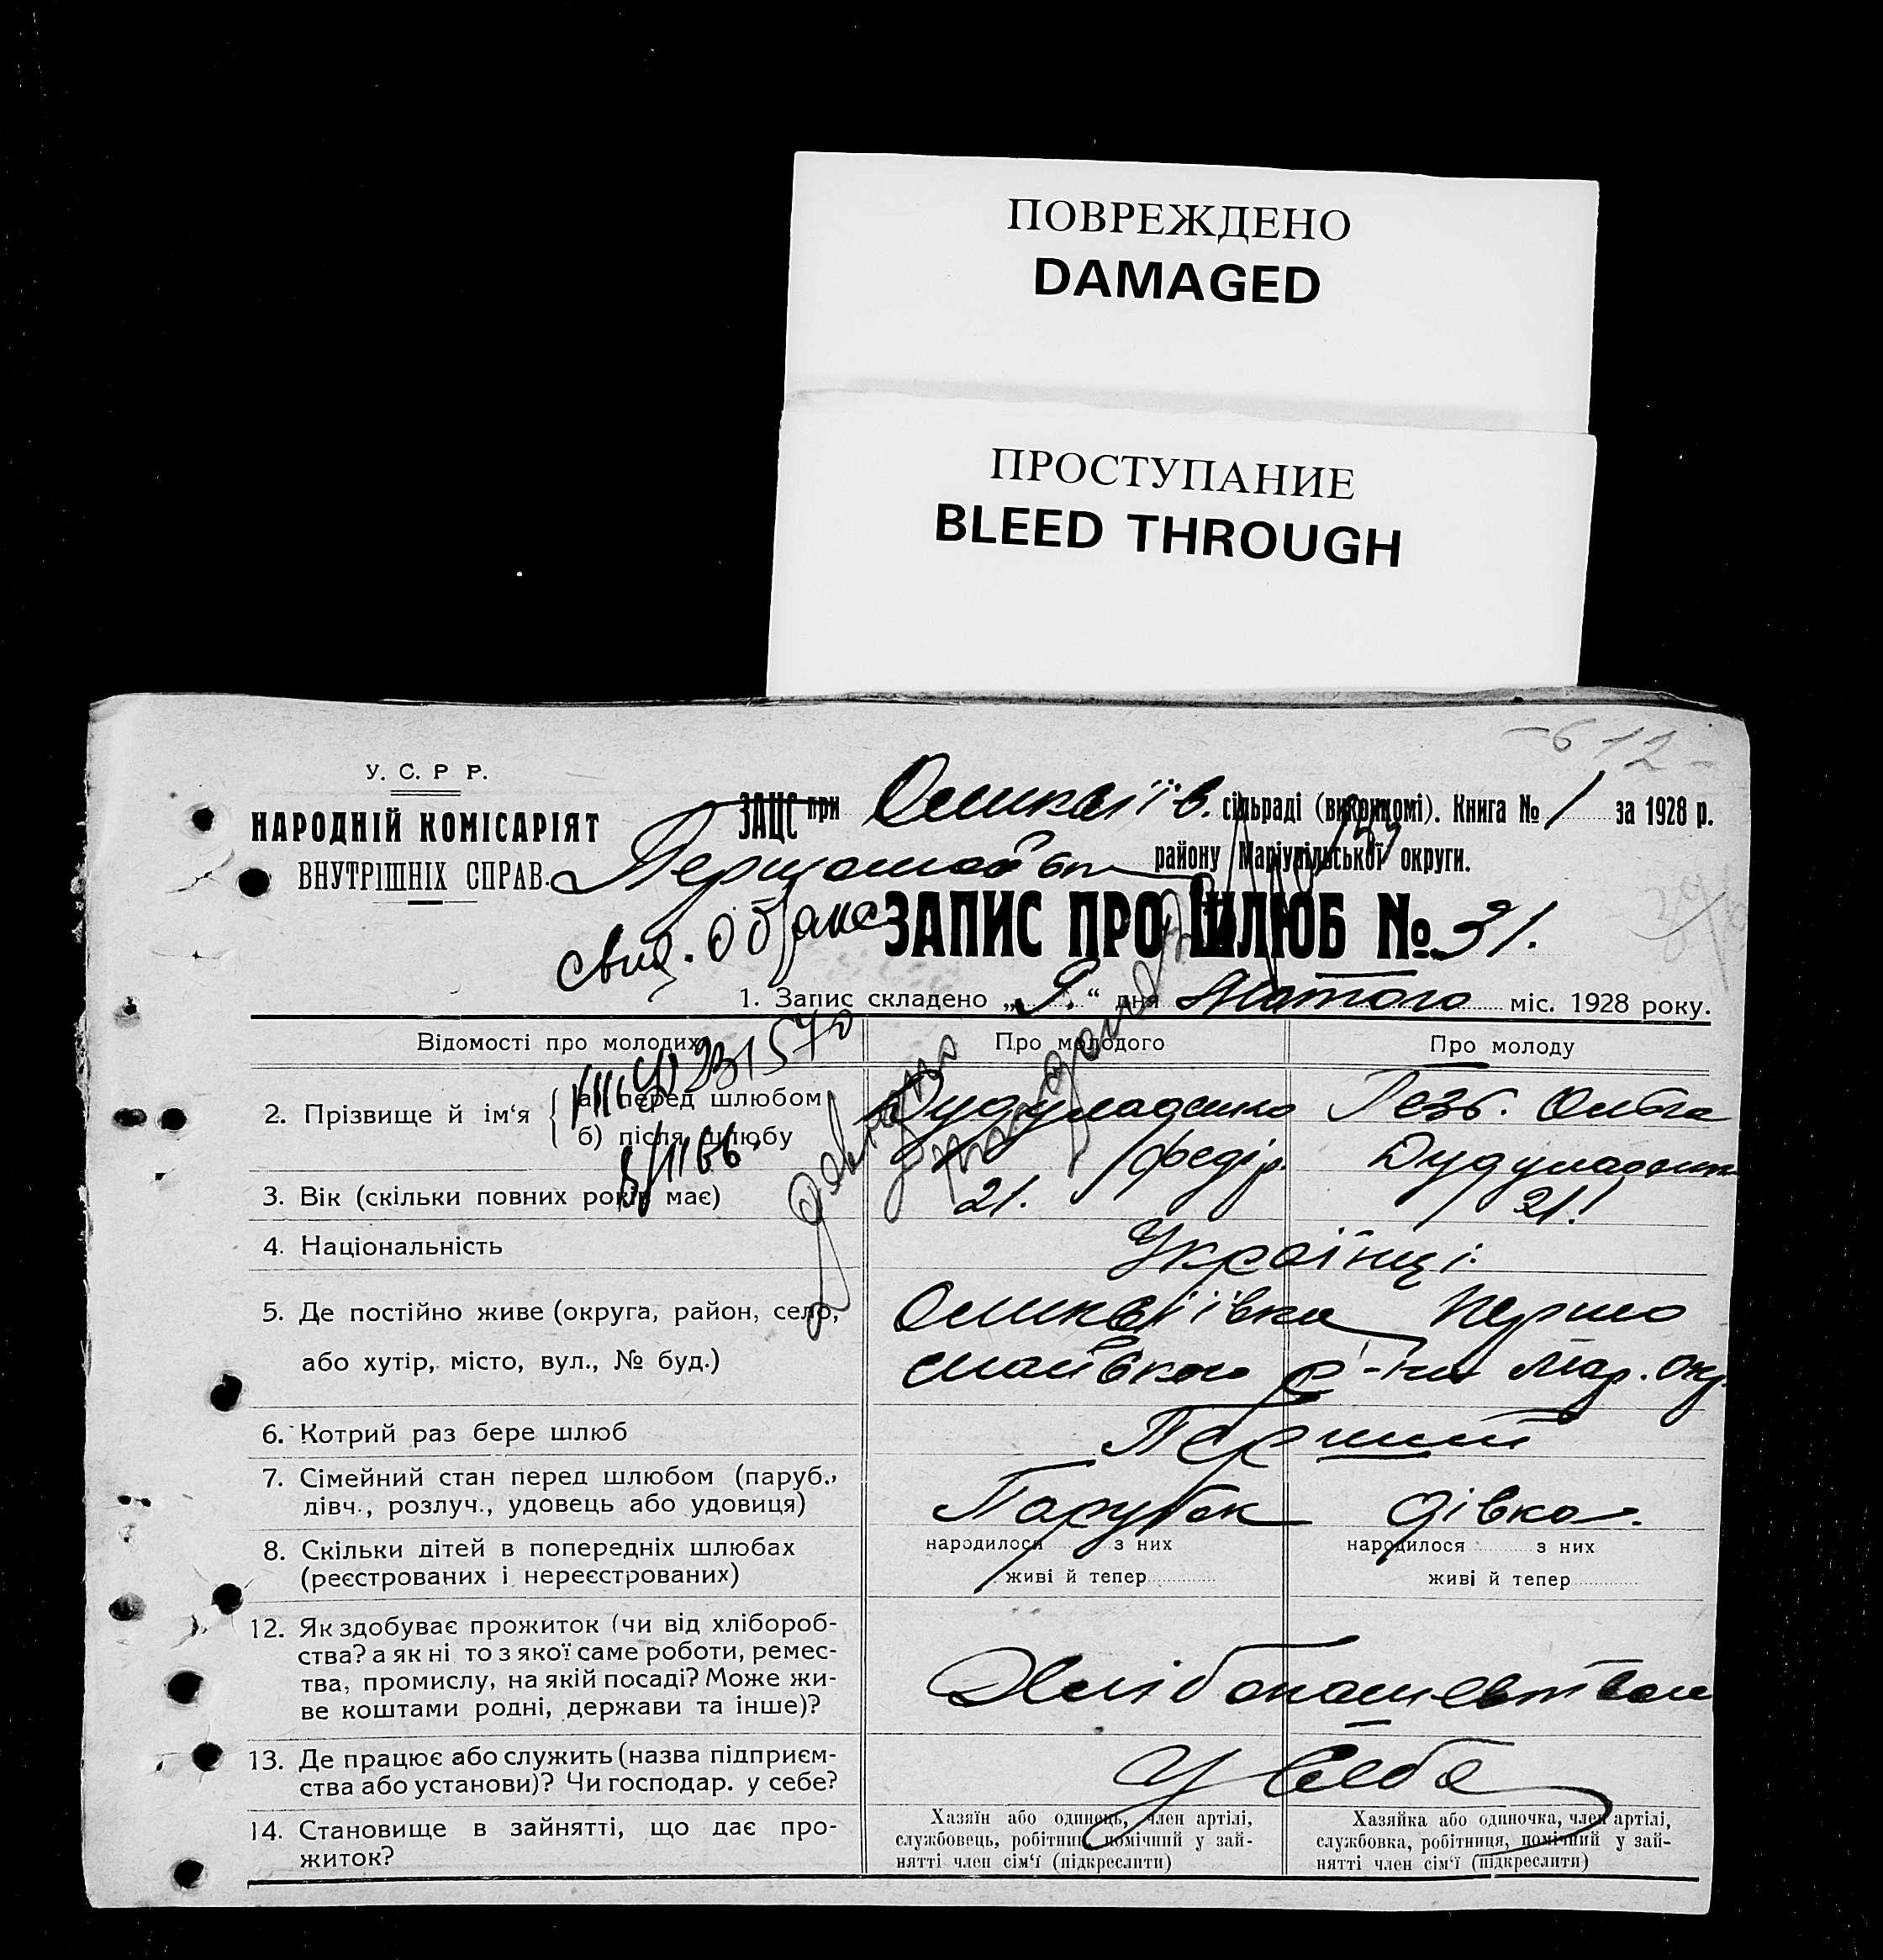 ПОВРЕЖДЕНО
DAMAGED
ПРОСТУПАНИЕ
BLEED THROUGH
612
У. С. Р Р.
НАРОДНІЙ КОМІСАРІЯТ
ВНУТРІШНІХ СПРАВ.
ЗАЦС при сільраді (виконкомі). Книга № 1 за 1928 р.
району Маріупільської округи.
ЗАПИС ПРО ШЛЮБ № 31.
1. Запис складено „ “ дня Лютого міс. 1928 року.
Відомості про молодих Про молодого Про молоду
2. Прізвище й ім‘я { а) перед шлюбом Ольга
б) після шлюбу Федір
3. Вік (скільки повних років має) 21. 21.
4. Національність Українці.
5. Де постійно живе (округа, район, село, Першо
або хутір, місто, вул., № буд.) р-ну Мар. Окр.
6. Котрий раз бере шлюб Перший
7. Сімейний стан перед шлюбом (паруб., Парубок дівка.
дівч., розлуч., удовець або удовиця)
8. Скільки дітей в попередніх шлюбах народилося з них народилося з них
(реєстрованих і нереєстрованих) живі й тепер живі й тепер
12. Як здобуває прожиток (чи від хлібороб-
ства? а як ні то з якої саме роботи, ремес-
тва, промислу, на якій посаді? Може жи-
ве коштами родні, держави та інше)?
13. Де працює або служить (назва підприєм- У себе
ства або установи)? Чи господар. у себе?
14. Становище в зайнятті, що дає про-
житок?
Хазяїн або одинець, член артілі,
службовець, робітник, помічний у зай-
нятті член сім‘ї (підкреслити)
Хазяйка або одиночка, член артілі,
службовка, робітниця, помічний у зай-
нятті член сім‘ї (підкреслити)